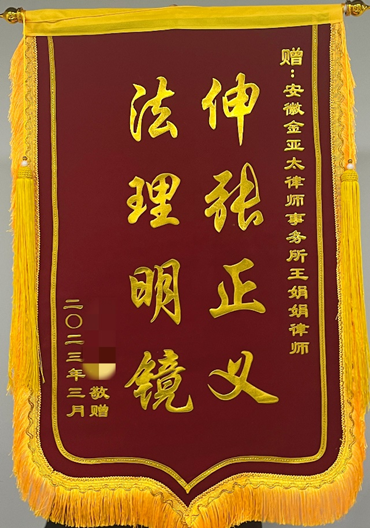 赠：安徽金亚太律师事务所王娟娟律师
伸张正义
法理明镜
敬赠
二〇二三年三月